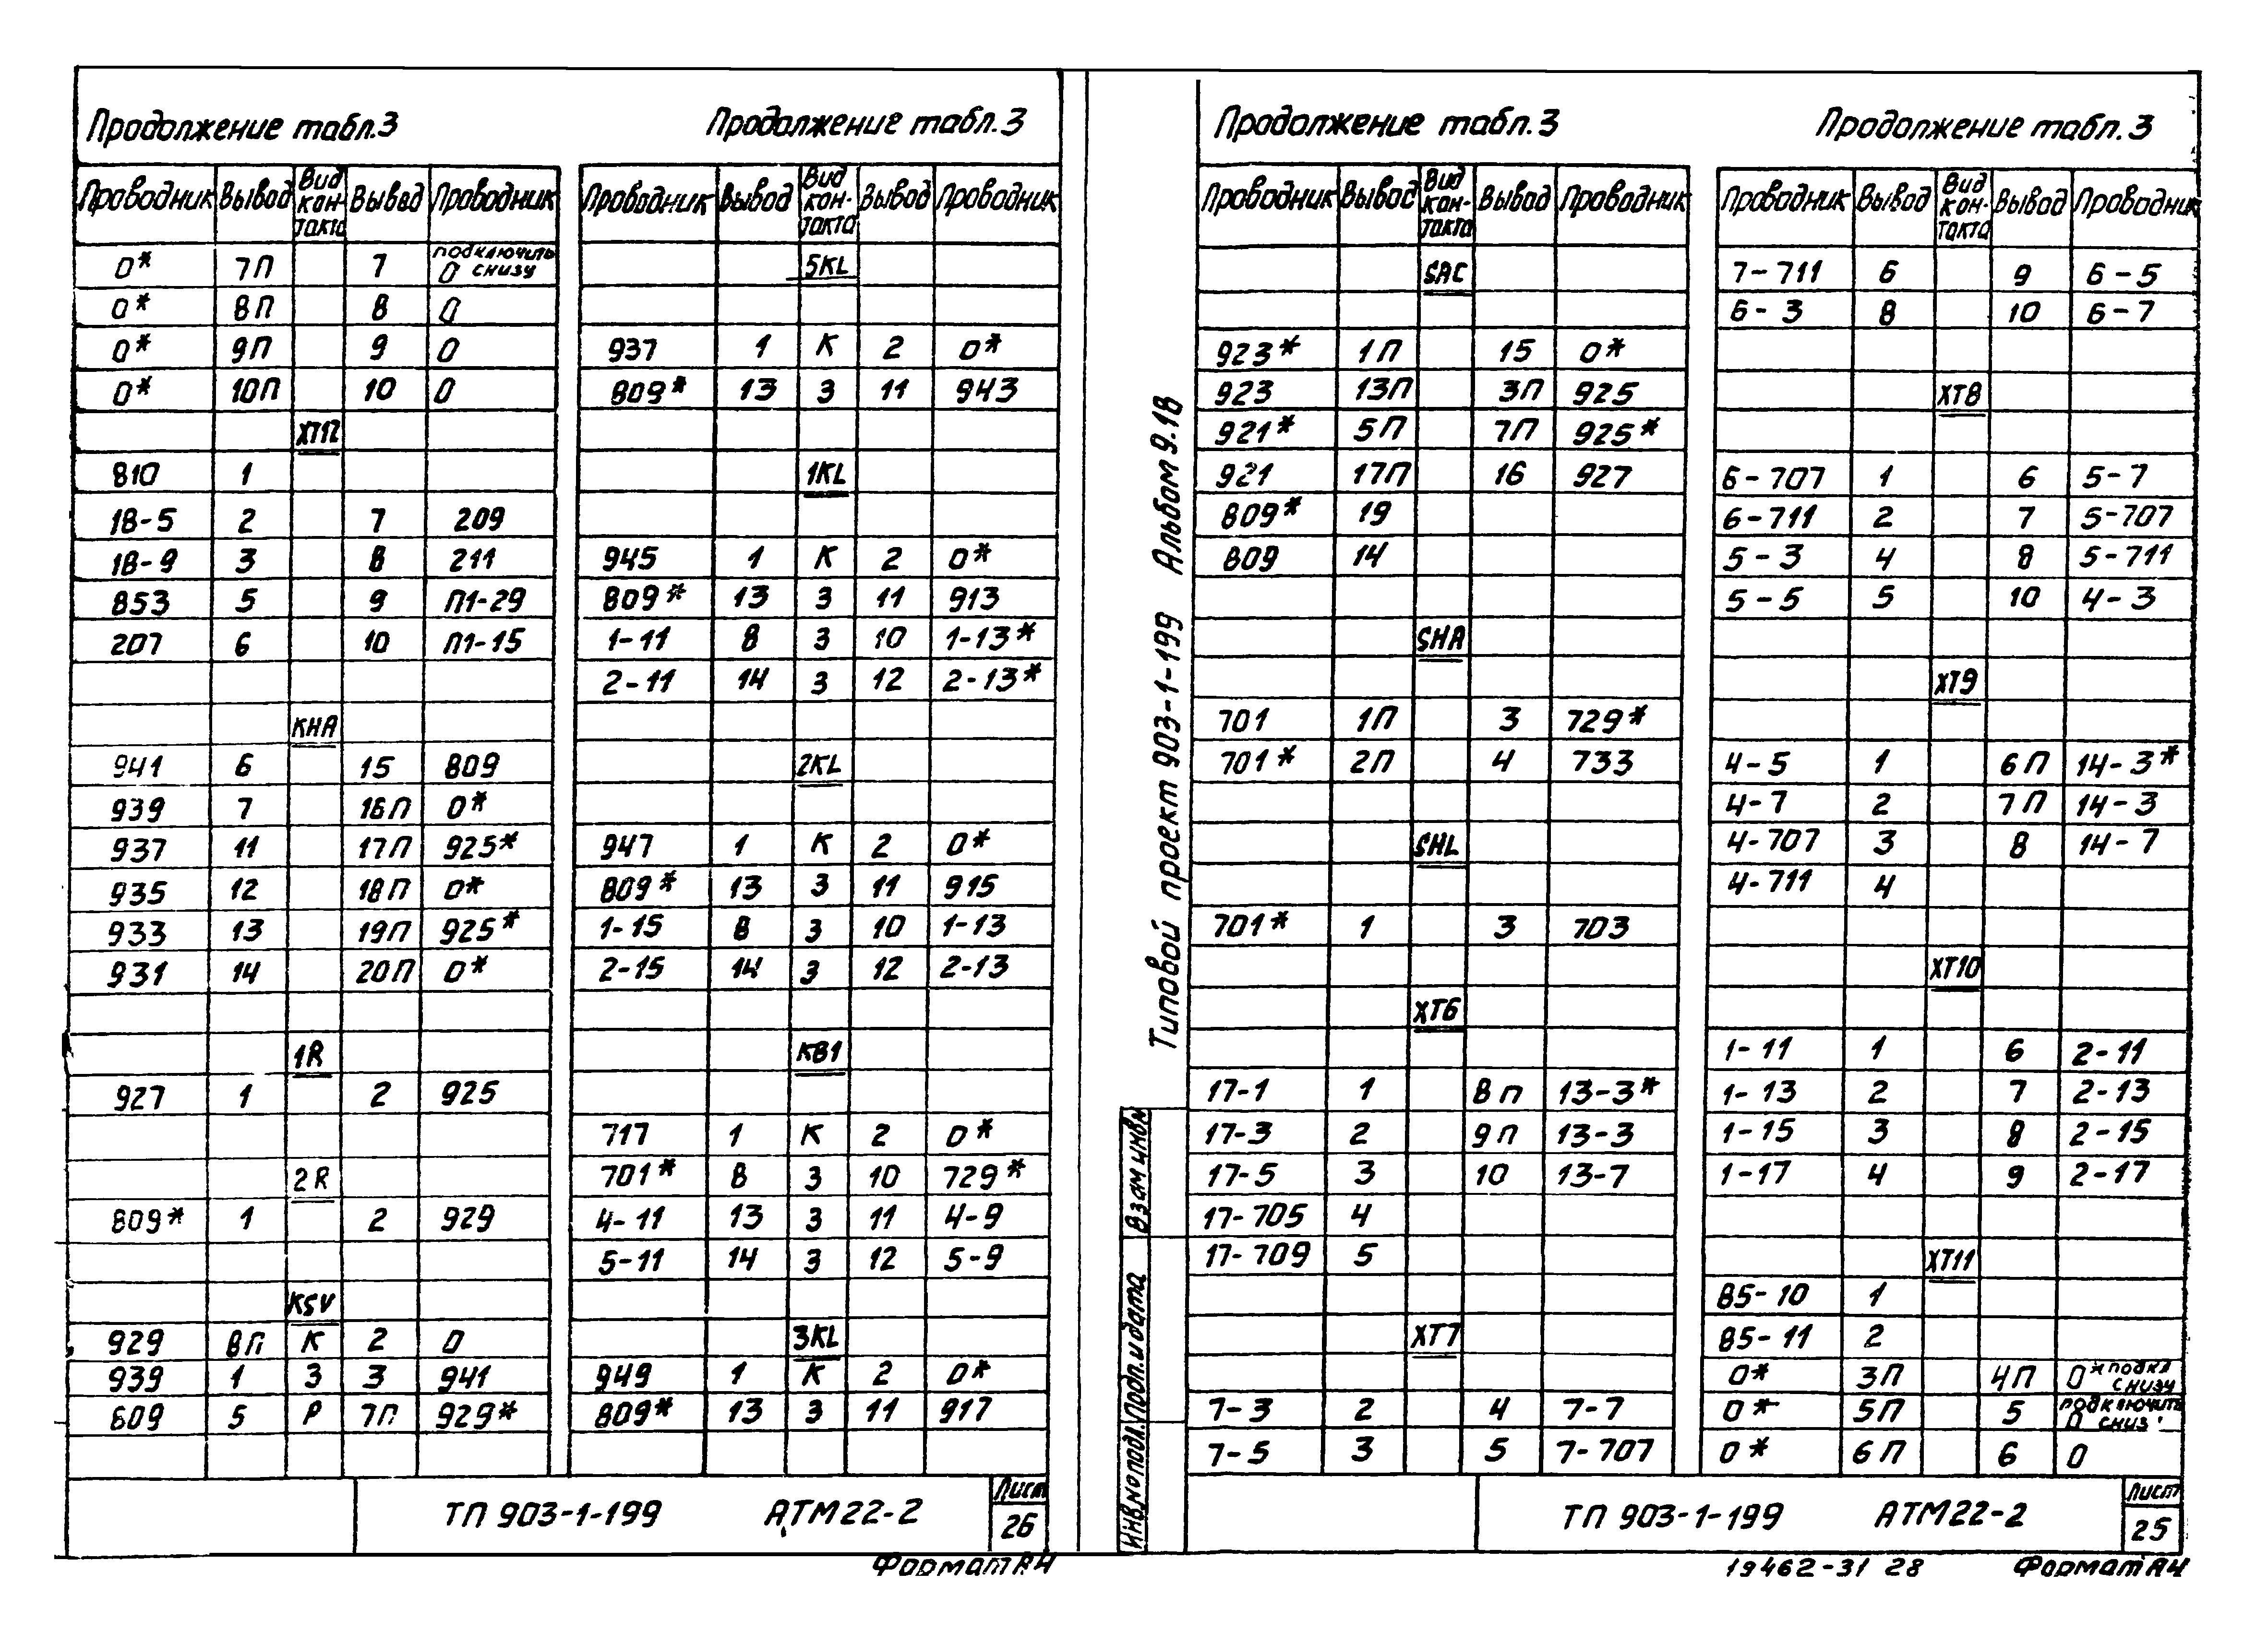 Продолжение табл.3
Проводник Вывод Вид контакта Вывод Проводник
0* 7П 7 0 подключить снизу
0* 8П 8 0
0* 9П 9 0
0* 10П 10 0
XT12
810 1
18-5 2 7 209
18-9 3 8 211
853 5 9 П1-29
207 6 10 П1-15
КНА
941 6 15 809
939 7 16П 0*
937 11 17П 925*
935 12 18П 0*
933 13 19П 925*
931 14 20П 0*
1R
927 1 2 925
2R
809* 1 2 929
KSV
929 8П К 2 0
939 1 З 3 941
809 5 Р 7П 929*
Продолжение табл.3
Проводник Вывод Вид кон-такта Вывод Проводник
5KL
937 1 К 2 0*
809* 13 З 11 943
1KL
945 1 К 2 0*
809* 13 З 11 913
1-11 8 З 10 1-13*
2-11 14 З 12 2-13*
2KL
947 1 К 2 0*
809* 13 З 11 915
1-15 8 З 10 1-13
2-15 14 З 12 2-13
КВ1
717 1 К 2 0*
701* 8 З 10 729*
4-11 13 З 11 4-9
5-11 14 З 12 5-9
3KL
949 1 К 2 0*
809* 13 З 11 917
ТП 903-1-199 АТМ22-2
Лист
26
Формат А4
Типовой проект 903-1-199 Альбом 9.18
Взам инв.№
Подп. и дата
Инв.№ подл.
Продолжение табл.3
Проводник Вывод Вид кон-такта Вывод Проводник
SAC
923* 1П 15 0*
923 13П 3П 925
921* 5П 7П 925*
921 17П 16 927
809* 19
809 14
SHA
701 1П 3 729*
701* 2П 4 733
SHL
701* 1 3 703
XT6
17-1 1 8П 13-3*
17-3 2 9П 13-3
17-5 3 10 13-7
17-705 4
17-709 5
XT7
7-3 2 4 7-7
7-5 3 5 7-707
Продолжение табл.3
Проводник Вывод Вид кон-такта Вывод Проводник
7-711 6 9 6-5
6-3 8 10 6-7
XT8
6-707 1 6 5-7
6-711 2 7 5-707
5-3 4 8 5-711
5-5 5 10 4-3
XT9
4-5 1 6П 14-3*
4-7 2 7П 14-3
4-707 3 8 14-7
4-711 4
XT10
1-11 1 6 2-11
1-13 2 7 2-13
1-15 3 8 2-15
1-17 4 9 2-17
XT11
85-10 1
85-11 2
0* 3П 4П 0* подкл снизу
0* 5П 5 0 подключить сниз
0* 6П 6 0
ТП 903-1-199 АТМ22-2
Лист
25
19462-31 28 Формат А4